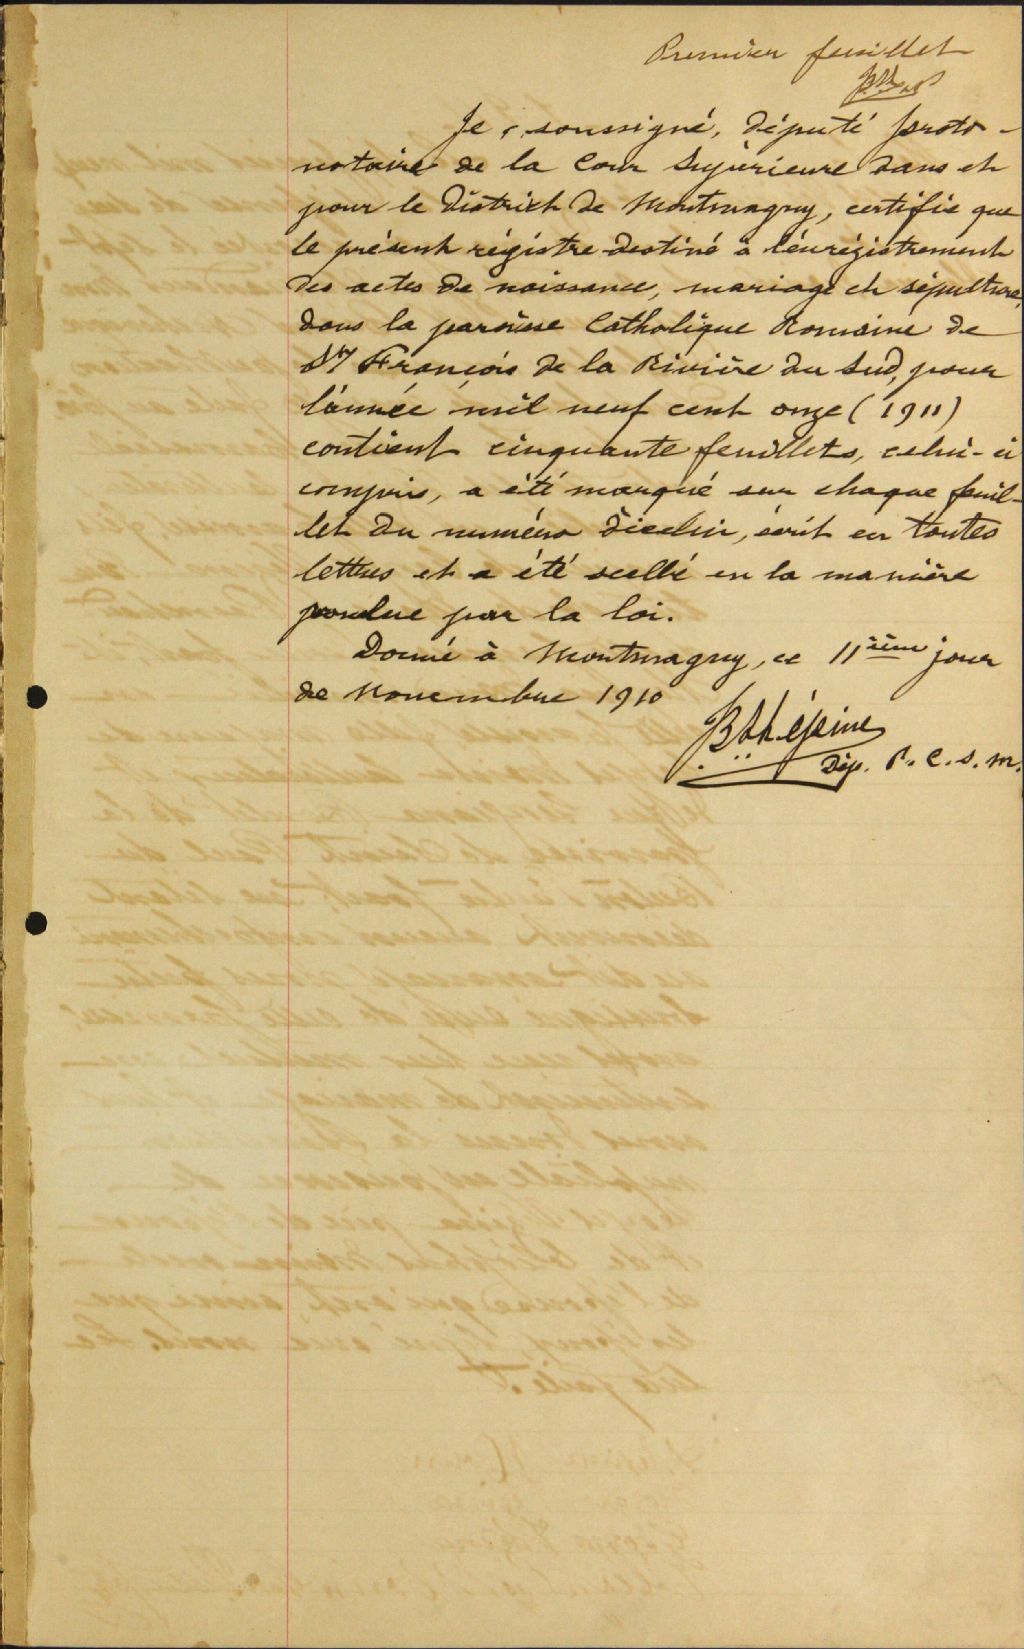 Premier feuillet
Je, soussigné, député proto-
notaire de la Cour Supérieure dans et
pour le District de Montmagny, certifie que
le présent régistre destiné à l'enrégistrement
des actes de naissance, mariage et sépulture,
dans la paroisse Catholique Romaine de
St François de la Rivière du Sud, pour
l'année mil neuf cent onze (1911)
contient cinquante feuillets, celui-ci
compris, a été marqué sur chaque feuil-
let du numéro d'icelui, écrit en toutes
lettres et a été scellé en la manière
voulue par la loi.
Donné à Montmagny, ce 11ième jour
de Novembre 1910
Lépine
Dép. P. C. S. M.